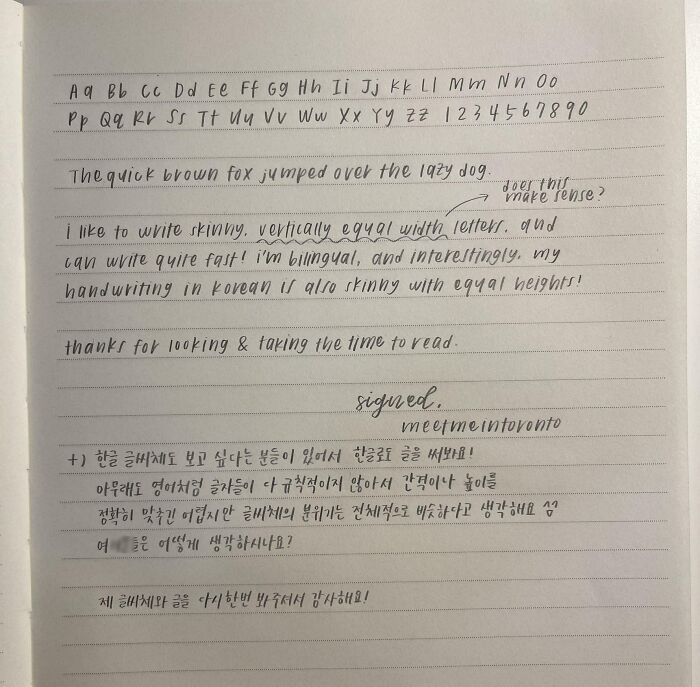 Aa Bb Cc Dd Ee Ff Gg Hh Ii Jj Kk Ll Mm Nn Oo
Pp Qq Rr Ss Tt Uu Vv Ww Xx Yy Zz 1 2 3 4 5 6 7 8 9 0
The quick brown fox jumped over the lazy dog.
does this
make sense?
i like to write skinny, vertically equal width letters, and
can write quite fast! i'm bilingual, and interestingly, my
handwriting in korean is also skinny with equal heights!
thanks for looking & taking the time to read.
signed,
meetmeintoronto
+) 한글 글씨체도 보고 싶다는 분들이 있어서 한글로도 글을 써봐요!
아무래도 영어처럼 글자들이 다 규칙적이지 않아서 간격이나 높이를
정확히 맞추긴 어렵지만 글씨체의 분위기는 전체적으로 비슷하다고 생각해요
여 들은 어떻게 생각하시나요?
제 글씨체와 글을 다시한번 봐주셔서 감사해요!